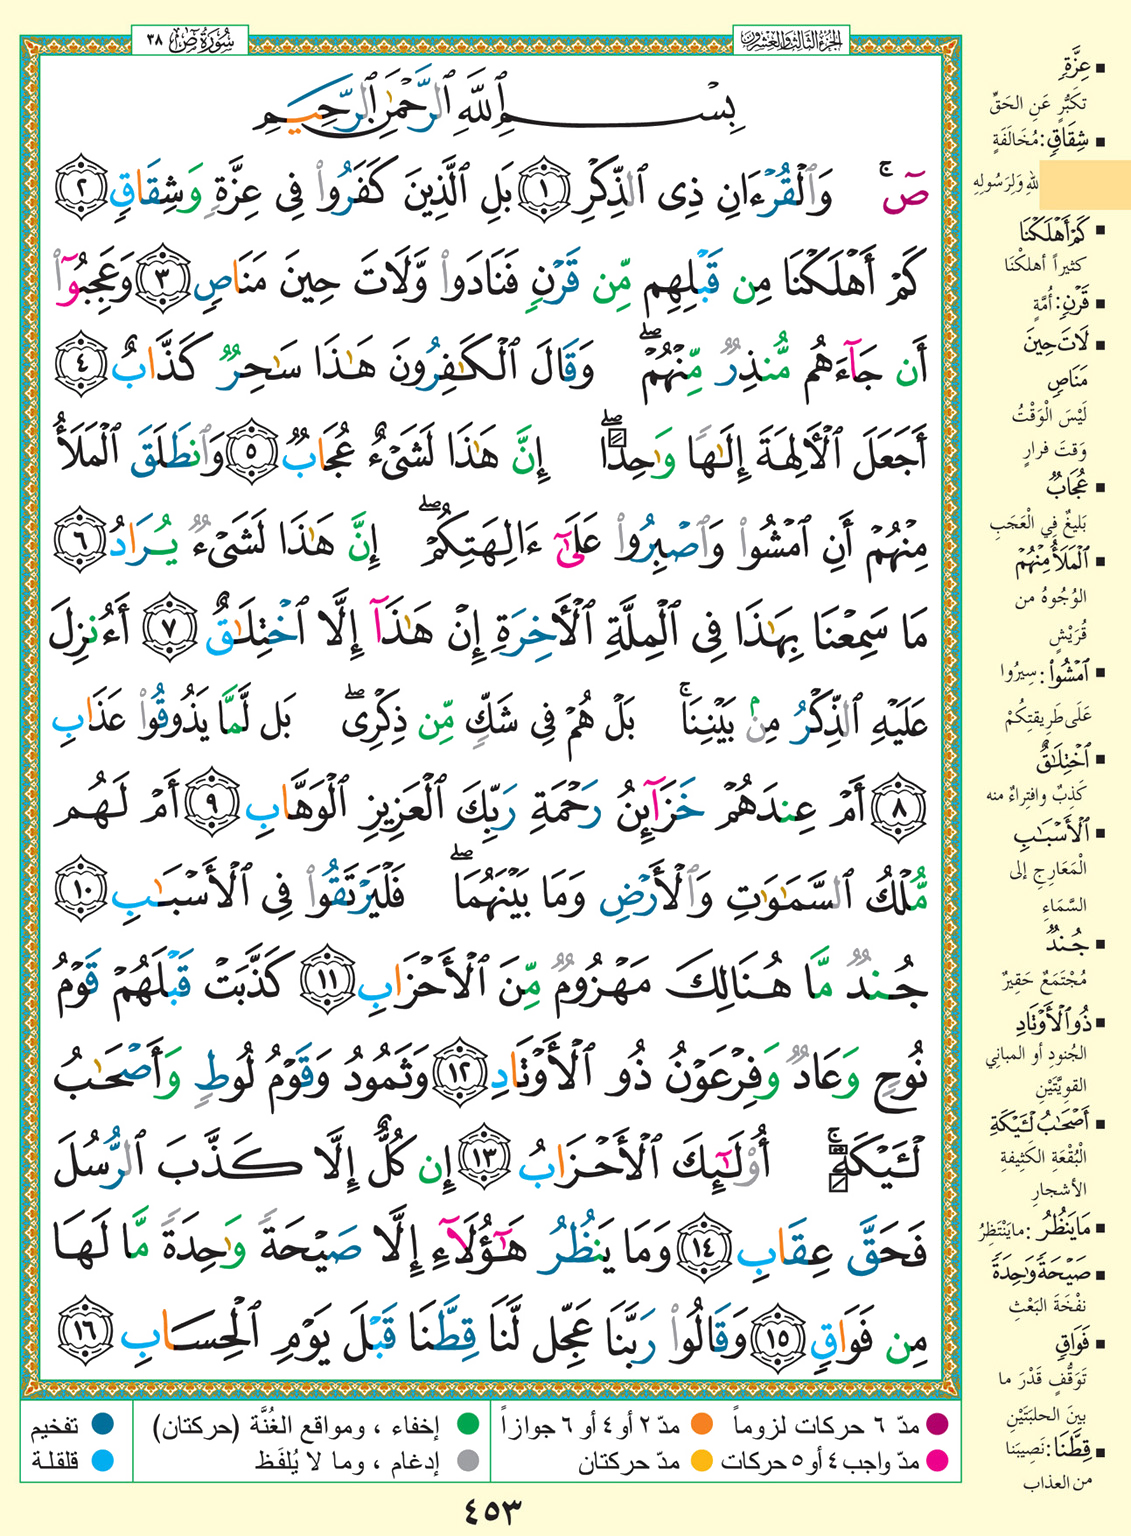 سُورَةُ ص ٣٨
الجزء الثالث والعشرون
بِسْمِ ٱللَّهِ ٱلرَّحْمَٰنِ ٱلرَّحِيمِ
صٓ ۚ وَٱلْقُرْءَانِ ذِى ٱلذِّكْرِ ١ بَلِ ٱلَّذِينَ كَفَرُوا۟ فِى عِزَّةٍ وَشِقَاقٍ ٢
كَمْ أَهْلَكْنَا مِن قَبْلِهِم مِّن قَرْنٍ فَنَادَوا۟ وَّلَاتَ حِينَ مَنَاصٍ ٣ وَعَجِبُوٓا۟
أَن جَآءَهُم مُّنذِرٌ مِّنْهُمْ ۖ وَقَالَ ٱلْكَٰفِرُونَ هَٰذَا سَٰحِرٌ كَذَّابٌ ٤
أَجَعَلَ ٱلْأَلِهَةَ إِلَٰهًا وَٰحِدًا ۖ إِنَّ هَٰذَا لَشَىْءٌ عُجَابٌ ٥ وَٱنطَلَقَ ٱلْمَلَأُ
مِنْهُمْ أَنِ ٱمْشُوا۟ وَٱصْبِرُوا۟ عَلَىٰٓ ءَالِهَتِكُمْ ۖ إِنَّ هَٰذَا لَشَىْءٌ يُرَادُ ٦
مَا سَمِعْنَا بِهَٰذَا فِى ٱلْمِلَّةِ ٱلْأَخِرَةِ إِنْ هَٰذَآ إِلَّا ٱخْتِلَٰقٌ ٧ أَءُنزِلَ
عَلَيْهِ ٱلذِّكْرُ مِنۢ بَيْنِنَا ۚ بَلْ هُمْ فِى شَكٍّ مِّن ذِكْرِى ۖ بَل لَّمَّا يَذُوقُوا۟ عَذَابِ
٨ أَمْ عِندَهُمْ خَزَآئِنُ رَحْمَةِ رَبِّكَ ٱلْعَزِيزِ ٱلْوَهَّابِ ٩ أَمْ لَهُم
مُّلْكُ ٱلسَّمَٰوَٰتِ وَٱلْأَرْضِ وَمَا بَيْنَهُمَا ۖ فَلْيَرْتَقُوا۟ فِى ٱلْأَسْبَٰبِ ١٠
جُندٌ مَّا هُنَالِكَ مَهْزُومٌ مِّنَ ٱلْأَحْزَابِ ١١ كَذَّبَتْ قَبْلَهُمْ قَوْمُ
نُوحٍ وَعَادٌ وَفِرْعَوْنُ ذُو ٱلْأَوْتَادِ ١٢ وَثَمُودُ وَقَوْمُ لُوطٍ وَأَصْحَٰبُ
لْـَٔيْكَةِ ۚ أُو۟لَٰٓئِكَ ٱلْأَحْزَابُ ١٣ إِن كُلٌّ إِلَّا كَذَّبَ ٱلرُّسُلَ
فَحَقَّ عِقَابِ ١٤ وَمَا يَنظُرُ هَٰٓؤُلَآءِ إِلَّا صَيْحَةً وَٰحِدَةً مَّا لَهَا
مِن فَوَاقٍ ١٥ وَقَالُوا۟ رَبَّنَا عَجِّل لَّنَا قِطَّنَا قَبْلَ يَوْمِ ٱلْحِسَابِ ١٦
عِزَّةٍ
تكَبُّرٍ عَنِ الحَقِّ
شِقَاقٍ: مُخَالَفَةٍ
للهِ وَلِرَسُولِهِ
كَمْ أَهْلَكْنَا
كثيراً أهلكْنَا
قَرْنٍ: أُمَّةٍ
لَاتَ حِينَ
مَنَاصٍ
لَيْسَ الْوَقْتُ
وَقتَ فرارٍ
عُجَابٌ
بَليغٌ فِي الْعَجَبِ
ٱلْمَلَأُ مِنْهُمْ
الوُجُوهُ من
قُرَيْشٍ
ٱمْشُوا۟: سِيرُوا
عَلَى طَرِيقتِكُمْ
ٱخْتِلَٰقٌ
كَذِبٌ وافتِراءٌ منه
ٱلْأَسْبَٰبِ
الْمَعَارِجِ إلى
السَّمَاءِ
جُندٌ
مُجْتَمَعٌ حَقِيرٌ
ذُو ٱلْأَوْتَادِ
الجُنودِ أو المباني
القويَّتَيْنِ
أَصْحَٰبُ لْـَٔيْكَةِ
الْبُقْعَةِ الكَثيفةِ
الأشجارِ
مَا يَنظُرُ: ما يَنْتَظِرُ
صَيْحَةً وَٰحِدَةً
نفْخَةَ البَعْثِ
فَوَاقٍ
تَوَقُّفٍ قَدْرَ ما
بينَ الحلبَتَيْنِ
قِطَّنَا: نَصِيبَنا
من العذاب
مدّ ٦ حركات لزوماً
مدّ ٢ أو ٤ أو ٦ جوازاً
إخفاء ، ومواقع الغُنَّة (حركتان)
تفخيم
مدّ واجب ٤ أو ٥ حركات
مدّ حركتان
إدغام ، وما لا يُلفَظ
قلقلة
٤٥٣